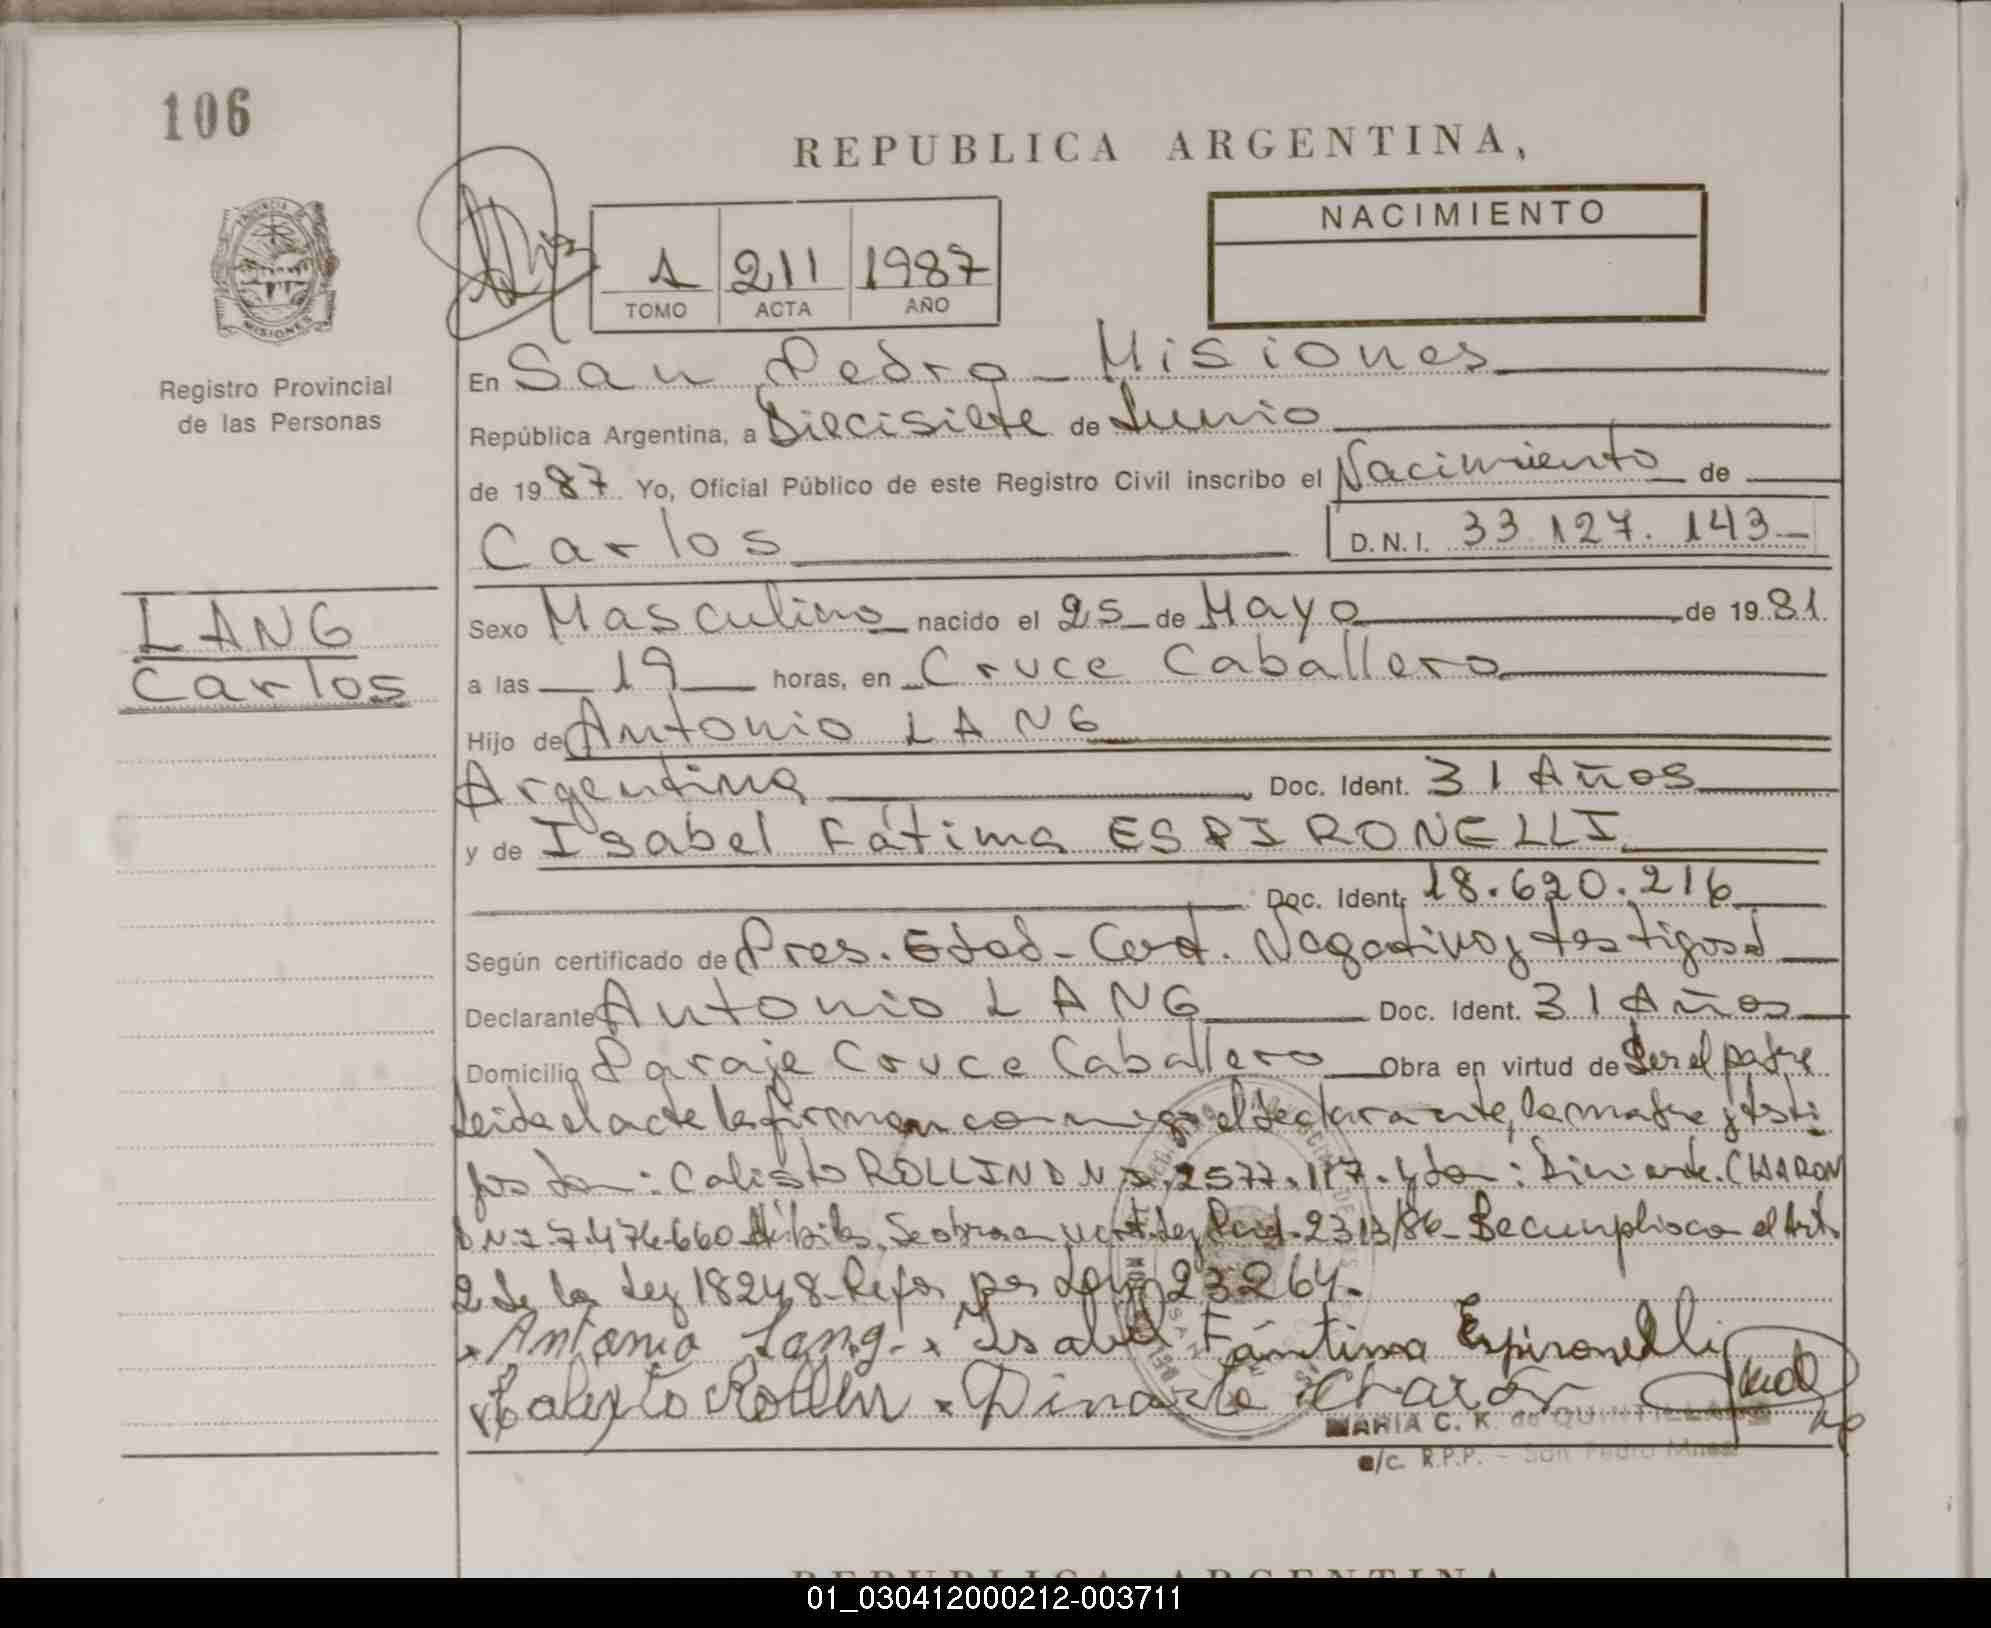 106
REPUBLICA ARGENTINA,
PROVINCIA DE
MISIONES
1 211 1987
TOMO ACTA AÑO
NACIMIENTO
Registro Provincial
de las Personas
En San Pedro - Misiones
República Argentina, a Diecisiete de Junio
de 1987 Yo, Oficial Público de este Registro Civil inscribo el Nacimiento de
Carlos D.N.I. 33.127.143-
LANG
Carlos
Sexo Masculino nacido el 25 de Mayo de 1981
a las 19 horas, en Cruce Caballero
Hijo de Antonio LANG
Argentina Doc. Ident. 31 Años
y de Isabel Fátima ESPIRONELLI
Doc. Ident. 18.620.216
Según certificado de Pres. Edad - Cert. Negativo y testigos
Declarante Antonio LANG Doc. Ident. 31 Años
Domicilio Paraje Cruce Caballero Obra en virtud de Ser el padre
Leida el acta la firman conmigo el declarante, la madre y testi
gos don: Calisto ROLLIN DNI. 2577.117. y don: Dinarte CHARON
DNI 7.474.660 Hábiles. Se obra en virt. Ley 2313/86 - Se cumplio con el Art.
2 de la Ley 18248 - Refor por Ley 23264.
Antonio Lang - x Isabel Fántima Espironelli
Calixto Rollin x Dinarte Charon
MARIA C. K. de QUINTILLAN
e/c. R.P.P. - San Pedro Mnes.
REPUBLICA ARGENTINA
01_030412000212-003711